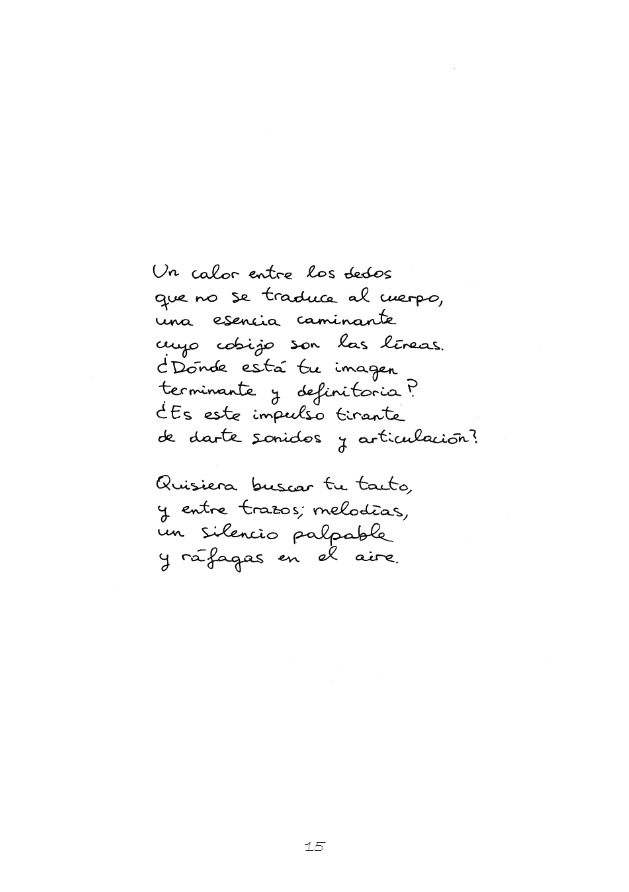 Un calor entre los dedos
que no se traduce al cuerpo,
una esencia caminante
cuyo cobijo son las líneas.
¿Dónde está tu imagen
terminante y definitoria?
¿Es este impulso tirante
de darte sonidos y articulación?
Quisiera buscar tu tacto,
y entre trazos; melodías,
un silencio palpable
y ráfagas en el aire.
15